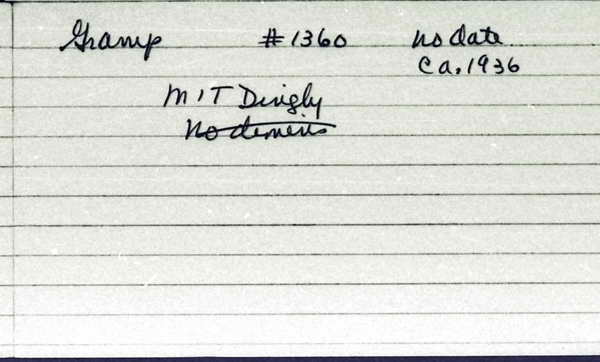 Gramp #1360 no date
ca. 1936
MIT Dingly
no demens